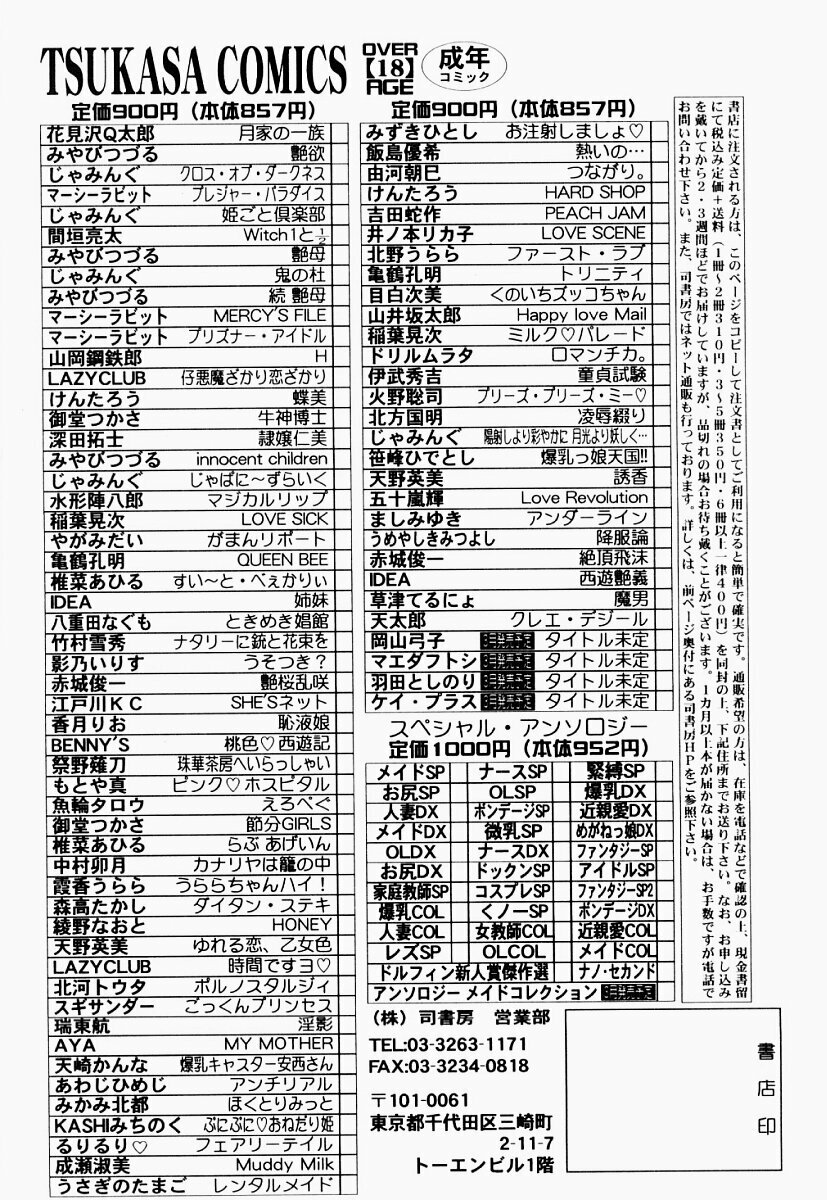 TSUKASA COMICS
OVER
【18】
AGE
成年
コミック
定価900円（本体857円）
花見沢Q太郎 月家の一族
みやびつづる 艶欲
じゃみんぐ クロス・オブ・ダークネス
マーシーラビット プレジャー・パラダイス
じゃみんぐ 姫ごと倶楽部
間垣亮太 Witch1と½
みやびつづる 艶母
じゃみんぐ 鬼の杜
みやびつづる 続 艶母
マーシーラビット MERCY'S FILE
マーシーラビット プリズナー・アイドル
山岡鋼鉄郎 H
LAZYCLUB 仔悪魔ざかり恋ざかり
けんたろう 蝶美
御堂つかさ 牛神博士
深田拓士 隷嬢仁美
みやびつづる innocent children
じゃみんぐ じゃぱに〜ずらいく
水形陣八郎 マジカルリップ
稲葉晃次 LOVE SICK
やがみだい がまんリポート
亀鶴孔明 QUEEN BEE
椎菜あひる すい〜と・べぇかりぃ
IDEA 姉妹
八重田なぐも ときめき娼館
竹村雪秀 ナタリーに銃と花束を
影乃いりす うそつき？
赤城俊一 艶桜乱咲
江戸川KC SHE'Sネット
香月りお 恥液娘
BENNY'S 桃色♡西遊記
祭野薙刀 珠華茶房へいらっしゃい
もとや真 ピンク♡ホスピタル
魚輪タロウ えろべぐ
御堂つかさ 節分GIRLS
椎菜あひる らぶ あげいん
中村卯月 カナリヤは籠の中
霞香うらら うららちゃんハイ！
森高たかし ダイタン・ステキ
綾野なおと HONEY
天野英美 ゆれる恋、乙女色
LAZYCLUB 時間ですヨ♡
北河トウタ ポルノスタルジィ
スギサンダー ごっくんプリンセス
瑞東航 淫影
AYA MY MOTHER
天崎かんな 爆乳キャスター安西さん
あわじひめじ アンチリアル
みかみ北都 ほくとりみっと
KASHIみちのく ぷにぷに♡おねだり姫
るりるり♡ フェアリーテイル
成瀬淑美 Muddy Milk
うさぎのたまご レンタルメイド
定価900円（本体857円）
みずきひとし お注射しましょ♡
飯島優希 熱いの…
由河朝巳 つながり。
けんたろう HARD SHOP
吉田蛇作 PEACH JAM
井ノ本リカ子 LOVE SCENE
北野うらら ファースト・ラブ
亀鶴孔明 トリニティ
目白次美 くのいちズッコちゃん
山井坂太郎 Happy love Mail
稲葉晃次 ミルク♡パレード
ドリルムラタ ロマンチカ。
伊武秀吉 童貞試験
火野聡司 プリーズ・プリーズ・ミー♡
北方国明 凌辱綴り
じゃみんぐ 陽射しより彩やかに 月光より妖しく…
笹峰ひでとし 爆乳っ娘天国!!
天野英美 誘香
五十嵐輝 Love Revolution
ましみゆき アンダーライン
うめやしきみつよし 降服論
赤城俊一 絶頂飛沫
IDEA 西遊艶義
草津てるにょ 魔男
天太郎 クレエ・デジール
岡山弓子 タイトル未定
マエダフトシ タイトル未定
羽田としのり タイトル未定
ケイ・プラス タイトル未定
スペシャル・アンソロジー
定価1000円（本体952円）
メイドSP ナースSP 緊縛SP
お尻SP OLSP 爆乳DX
人妻DX ボンデージSP 近親愛DX
メイドDX 微乳SP めがねっ娘DX
OLDX ナースDX ファンタジーSP
お尻DX ドックンSP アイドルSP
家庭教師SP コスプレSP ファンタジーSP2
爆乳COL くノーSP ボンデージDX
人妻COL 女教師COL 近親愛COL
レズSP OLCOL メイドCOL
ドルフィン新人賞傑作選 ナノ・セカンド
アンソロジー メイドコレクション
（株）司書房 営業部
TEL:03-3263-1171
FAX:03-3234-0818
〒101-0061
東京都千代田区三崎町
2-11-7
トーエンビル1階
書店印
書店に注文される方は、このページをコピーして注文書としてご利用になると簡単で確実です。通販希望の方は、在庫を電話などで確認の上、現金書留
にて税込み定価＋送料（1冊〜2冊310円・3〜5冊350円・6冊以上一律400円）を同封の上、下記住所までお送り下さい。なお、お申し込み
を戴いてから2・3週間ほどでお届けしていますが、品切れの場合お待ち戴くことがございます。1カ月以上本が届かない場合は、お手数ですが電話で
お問い合わせ下さい。また、司書房ではネット通販も行っております。詳しくは、前ページ奥付にある司書房HPをご参照下さい。